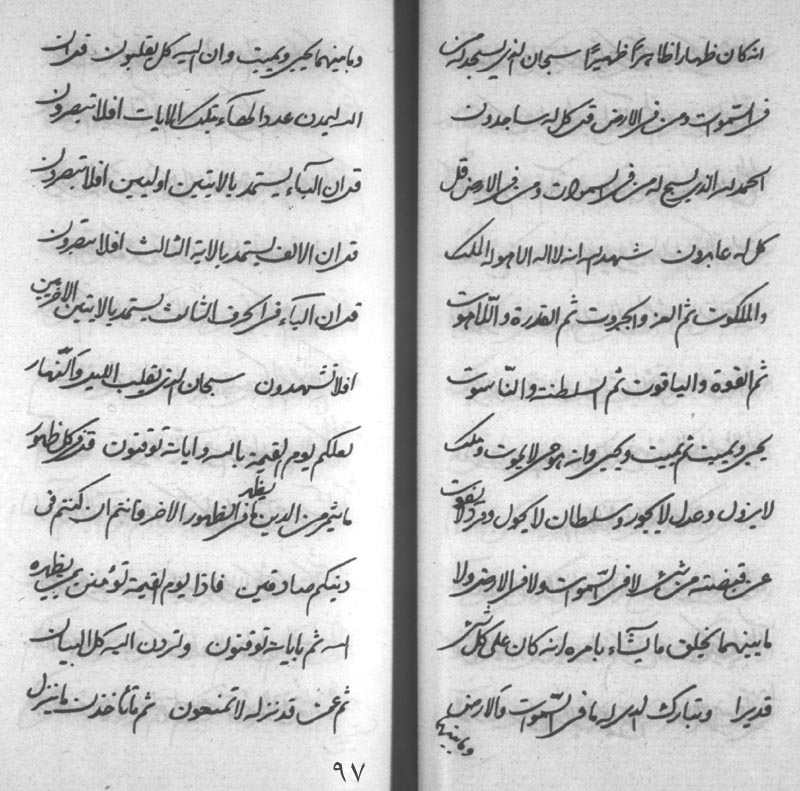 انه كان ظهارا ظاهرا ظهيرا سبحان الذي يسجد له من
في السموات ومن في الارض قل كل له ساجدون
الحمد لله الذي يسبح له من في السموات ومن في الارض قل
كل له عابدون شهد الله انه لا اله الا هو له الملك
والملكوت ثم العز والجبروت ثم القدرة واللاهوت
ثم القوة والياقوت ثم السلطنة والناسوت
يحيي ويميت ثم يميت ويحيي وانه هو حي لا يموت وملك
لا يزول وعدل لا يجور وسلطان لا يحول وفرد لا يفوت
عن قبضته من شئ لا في السموات ولا في الارض ولا
ما بينهما يخلق ما يشاء بامره انه كان على كل شئ
قديرا وتبارك الذي له ما في السموات والارض
وما بينهما
وما بينهما يحيي ويميت وان اليه كل يقلبون قل ان
الدليلين عدد الحاء تلك الايات افلا تبصرون
قل ان الباء يستمد بالايتين اوليين افلا تبصرون
قل ان الالف يستمد بالاية الثالث افلا تبصرون
قل ان الباء في الحرف الثالث يستمد بالايتين الاخريين
افلا تشهدون سبحان الذي يقلب الليل والنهار
لعلكم يوم القيمة بالله واياته توقنون قل في كل ظهور
ما يثمر من الدين يظهر في الظهور الاخر فانتم ان كنتم في
دينكم صادقين فاذا يوم القيمة تؤمنن بمن يظهره
الله ثم باياته توقنون ولتردن اليه كل البيان
ثم عمن قد نزله لا تمنعون ثم ما تاخذن ما ينزل
٩٧